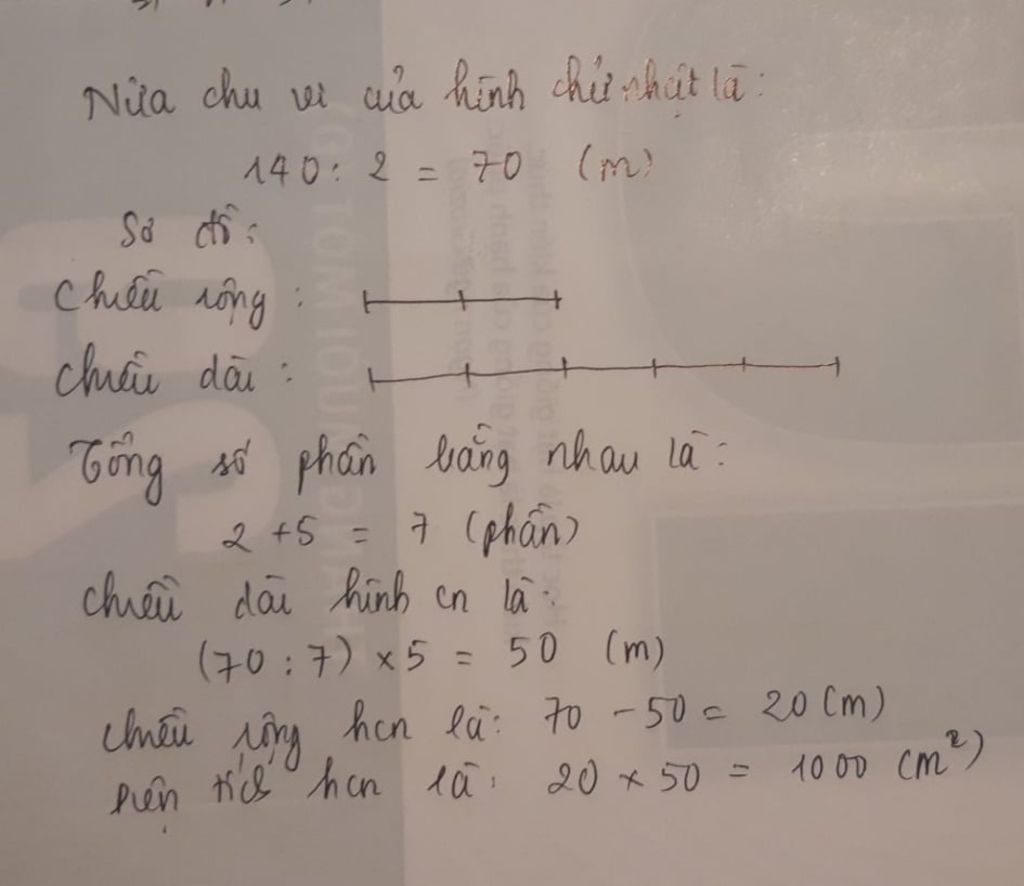 Nửa chu vi của hình chữ nhật là:
140 : 2 = 70 (m)
Sơ đồ:
Chiều rộng :
Chiều dài :
Tổng số phần bằng nhau là:
2 + 5 = 7 (phần)
Chiều dài hình cn là:
(70 : 7) × 5 = 50 (m)
Chiều rộng hcn là: 70 - 50 = 20 (m)
Diện tích hcn là: 20 × 50 = 1000 (m²)